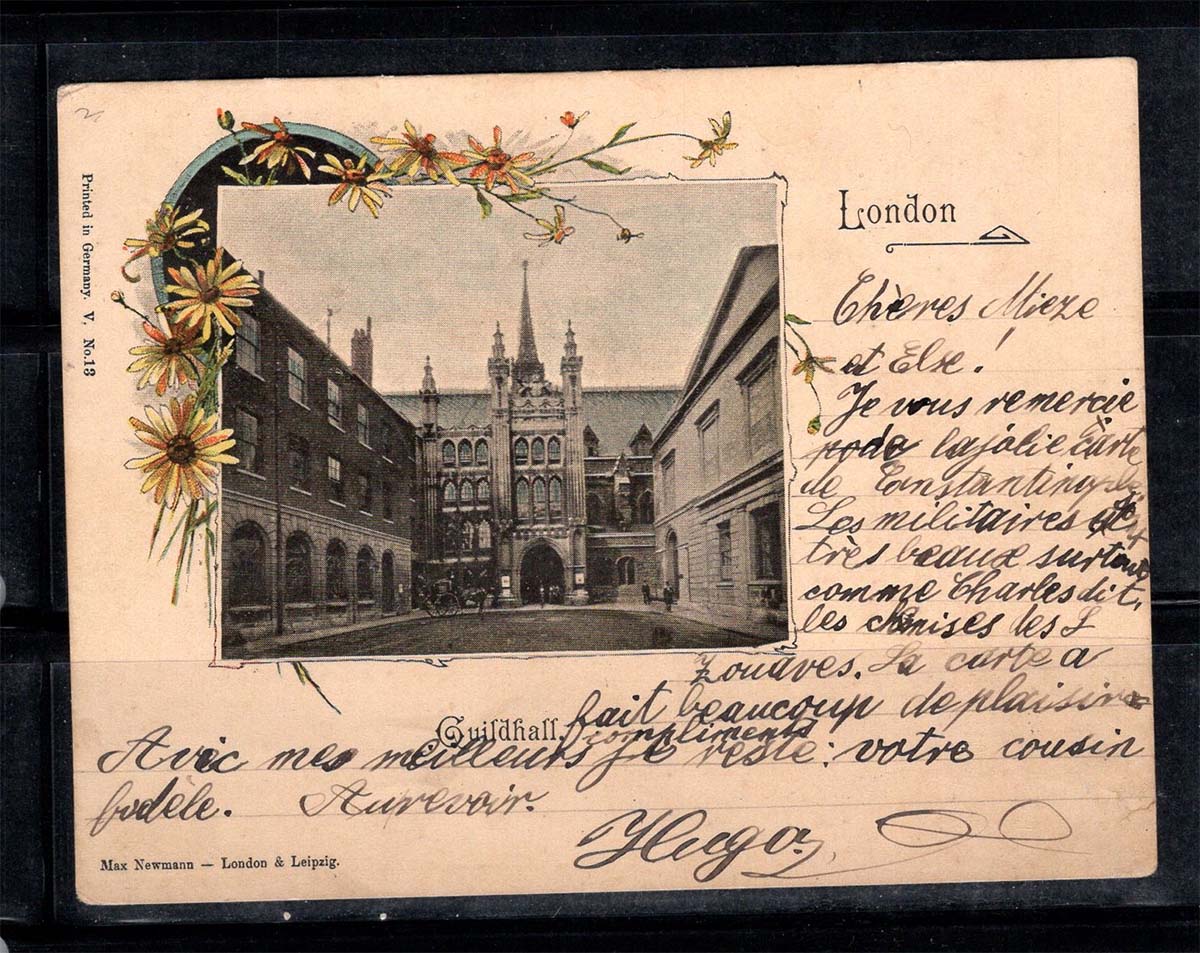 Printed in Germany. V, No. 13
London
Chères Mieze
et Else!
Je vous remercie
la jolie carte
de Constantinople.
Les militaires
très beaux surtout
comme Charles dit,
les chemises des
Zouaves. La carte a
fait beaucoup de plaisir
Guildhall.
compliments
Avéc mes meilleurs je reste: votre cousin
fidèle. Aurevoir.
Hugo
Max Newmann — London & Leipzig.